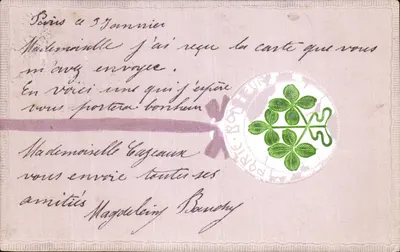 Paris ce 3 Janvier
Mademoiselle j'ai reçu la carte que vous
m'avez envoyée.
En voici une qui j'espère
vous portera bonheur
PORTE-BONHEUR
Mademoiselle Cazeaux
vous envoie toutes ses
amitiés
Magdeleine